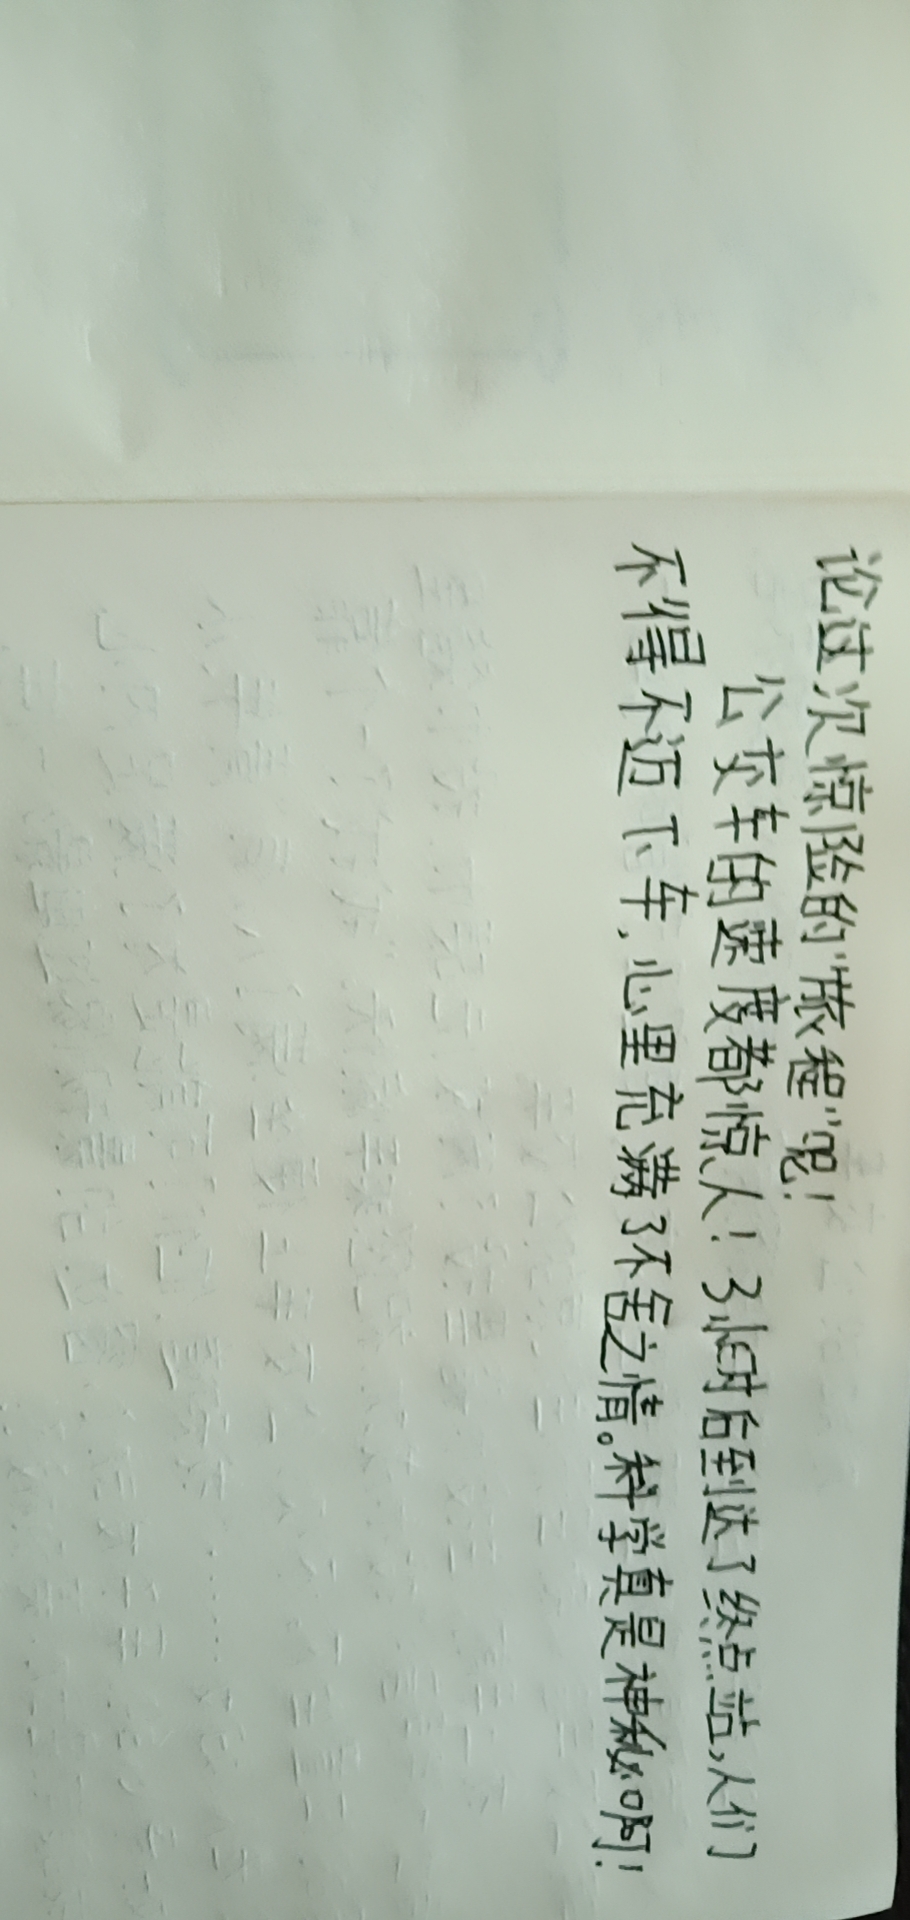 论过次惊险的“旅程”吧！
公交车的速度都惊人！3小时后到达了终点站，人们
不得不迈下车，心里充满了不舍之情。科学真是神秘啊！